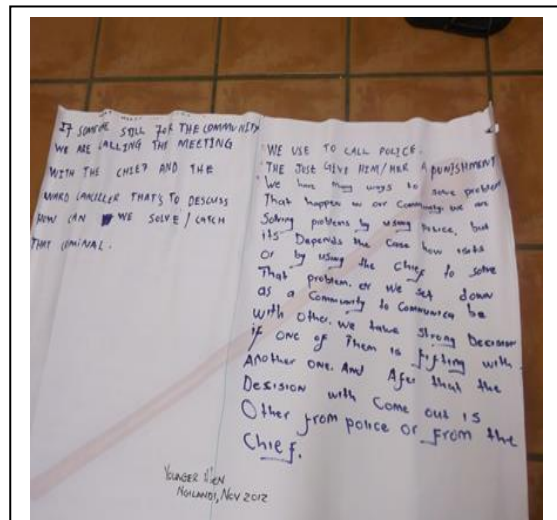 IF SOMEONE STILL FOR THE COMMUNITY
WE ARE CALLING THE MEETING
WITH THE CHIEF AND THE
WARD CANCILLER THAT'S TO DISCUSS
HOW CAN WE SOLVE / CATCH
THAT CRIMINAL.
WE USE TO CALL POLICE.
THE JUST GIVE HIM/HER A PUNISHMENT
We have Many ways to solve problem
That happen in our Community. we are
Solving problems by using police, but
its Depends the Case how is its
or by using the Chief to solve
That problem. or we set down
as a Community to Communica be
with other. we take Strong Decision
if one of Them is fifting with
Another one. And Afer that the
Desision with Come out is
Other from police or from the
Chief.
YOUNGER MEN
NOILANDI, NOV 2012